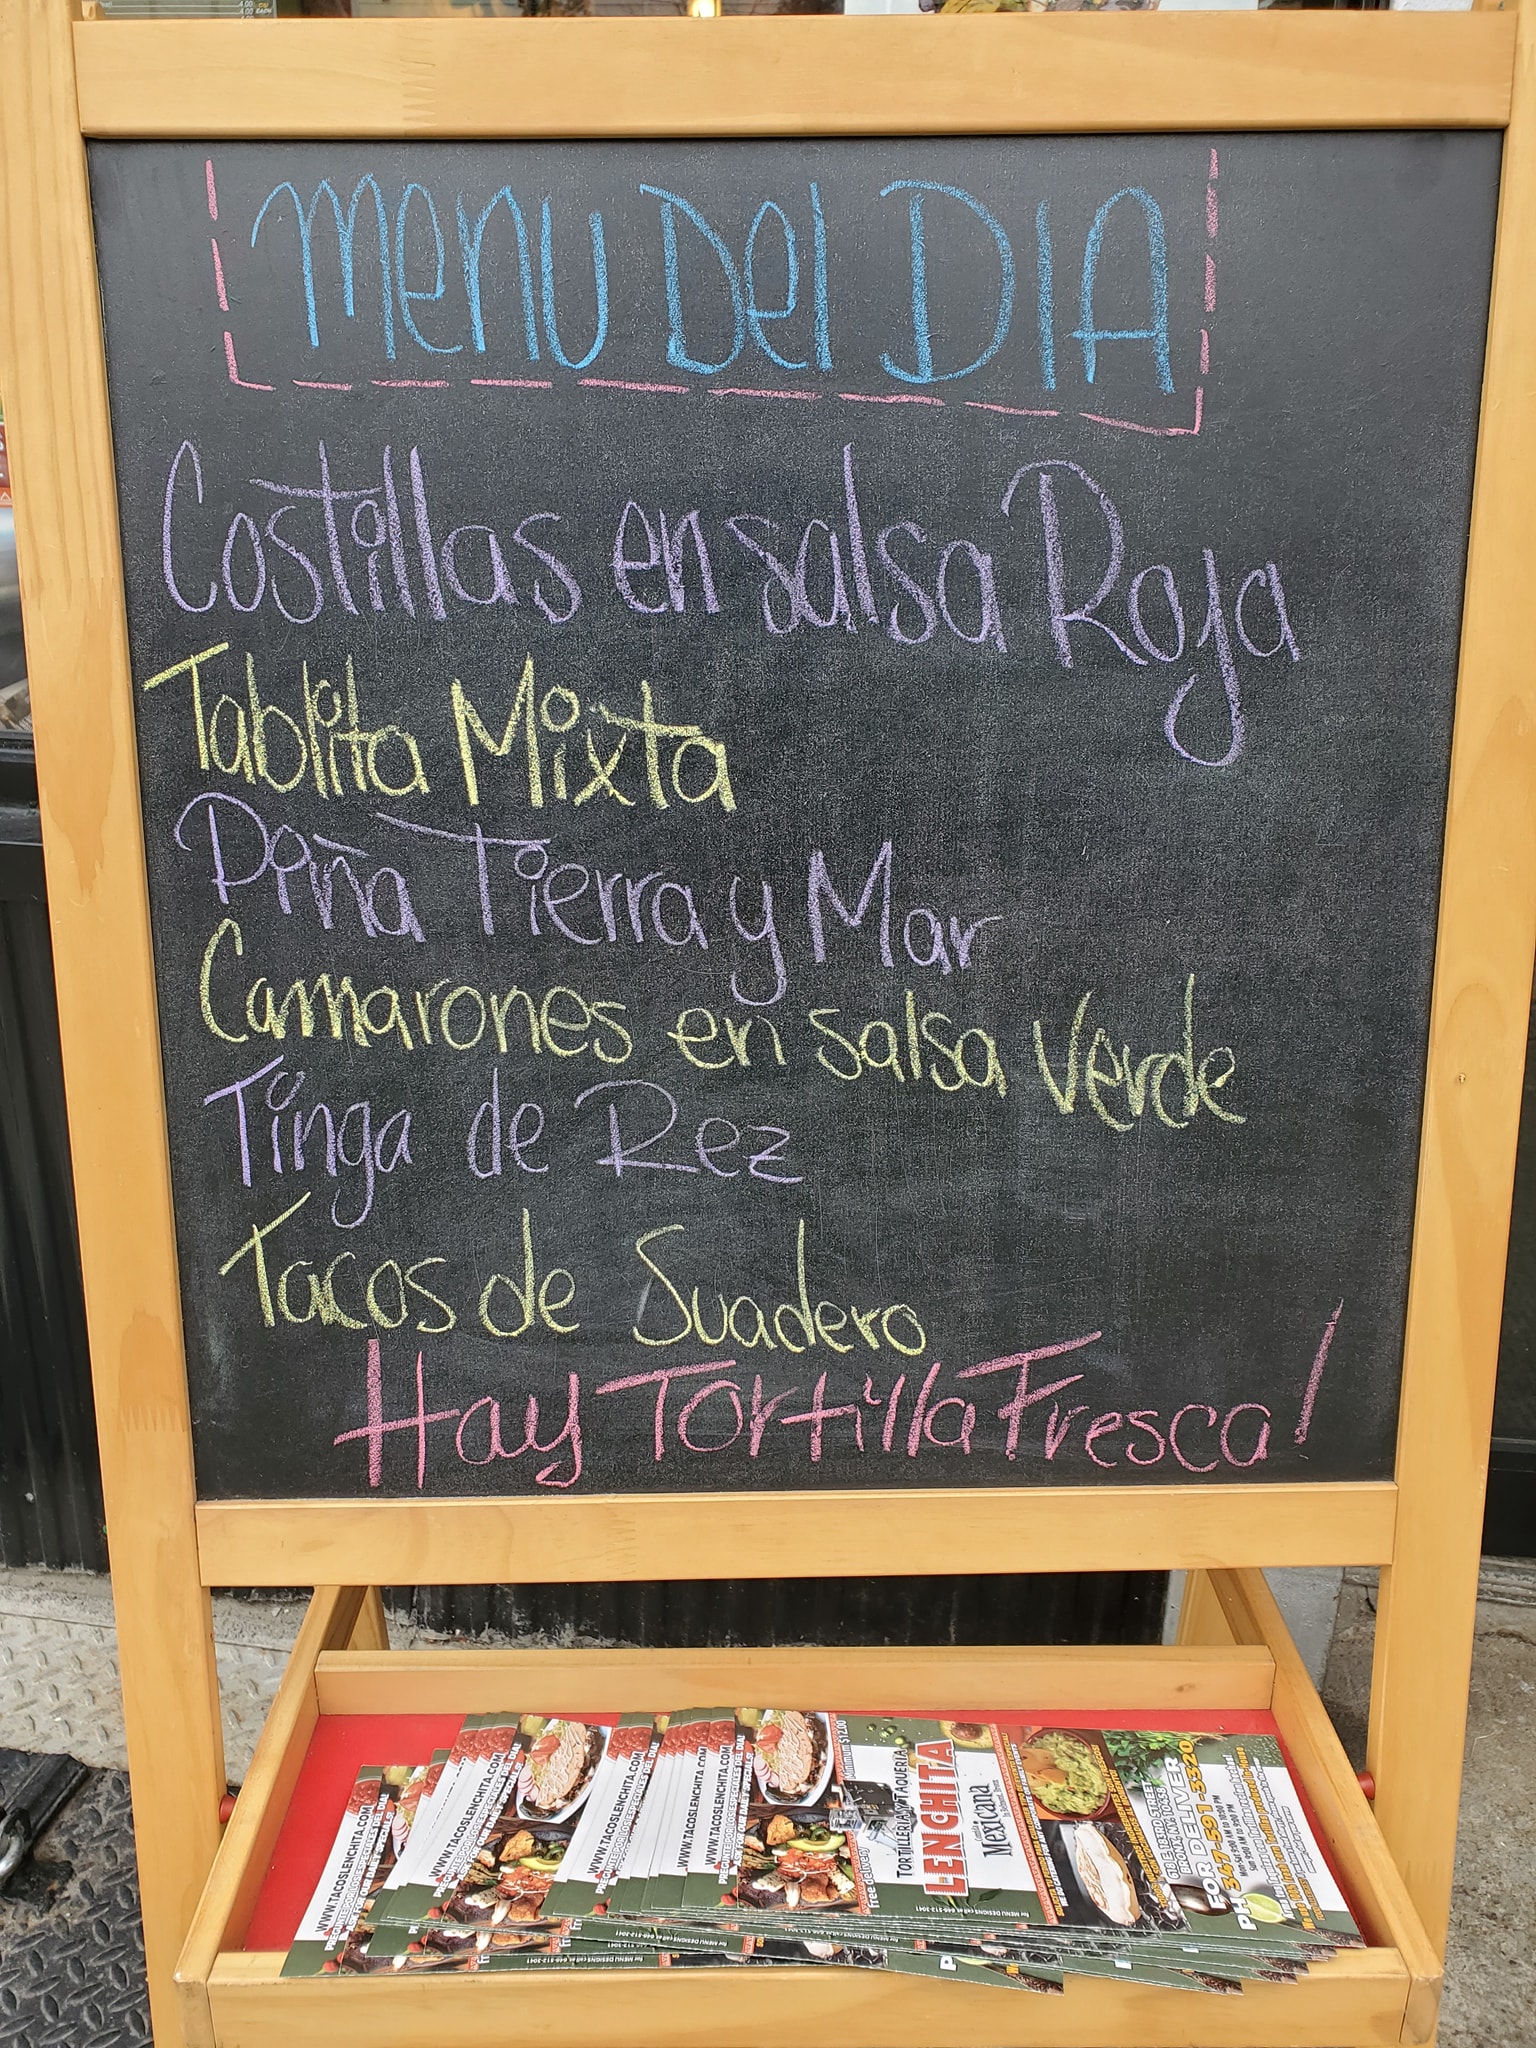 Menu Del DIA
Costillas en salsa Roja
Tablita Mixta
Piña Tierra y Mar
Camarones en salsa Verde
Tinga de Rez
Tacos de Suadero
Hay Tortilla Fresca!
WWW.TACOSLENCHITA.COM
WWW.TACOSLENCHITA.COM
WWW.TACOSLENCHITA.COM
WWW.TACOSLENCHITA.COM
Minimum $12.00
free delivery
TORTILLERIA Y TAQUERIA
LENCHITA
Comida
Mexicana
for MENU DESIGNS call at 646-512-3041
FOR DELIVERY
347-591-3320